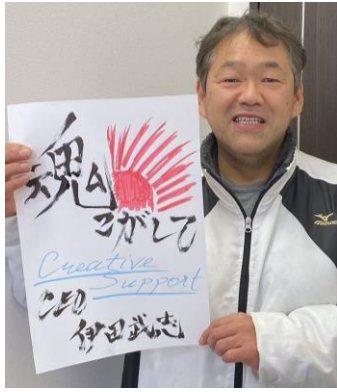 魂
こがして
Creative
Support
CEO
伊田武志
MIZUNO